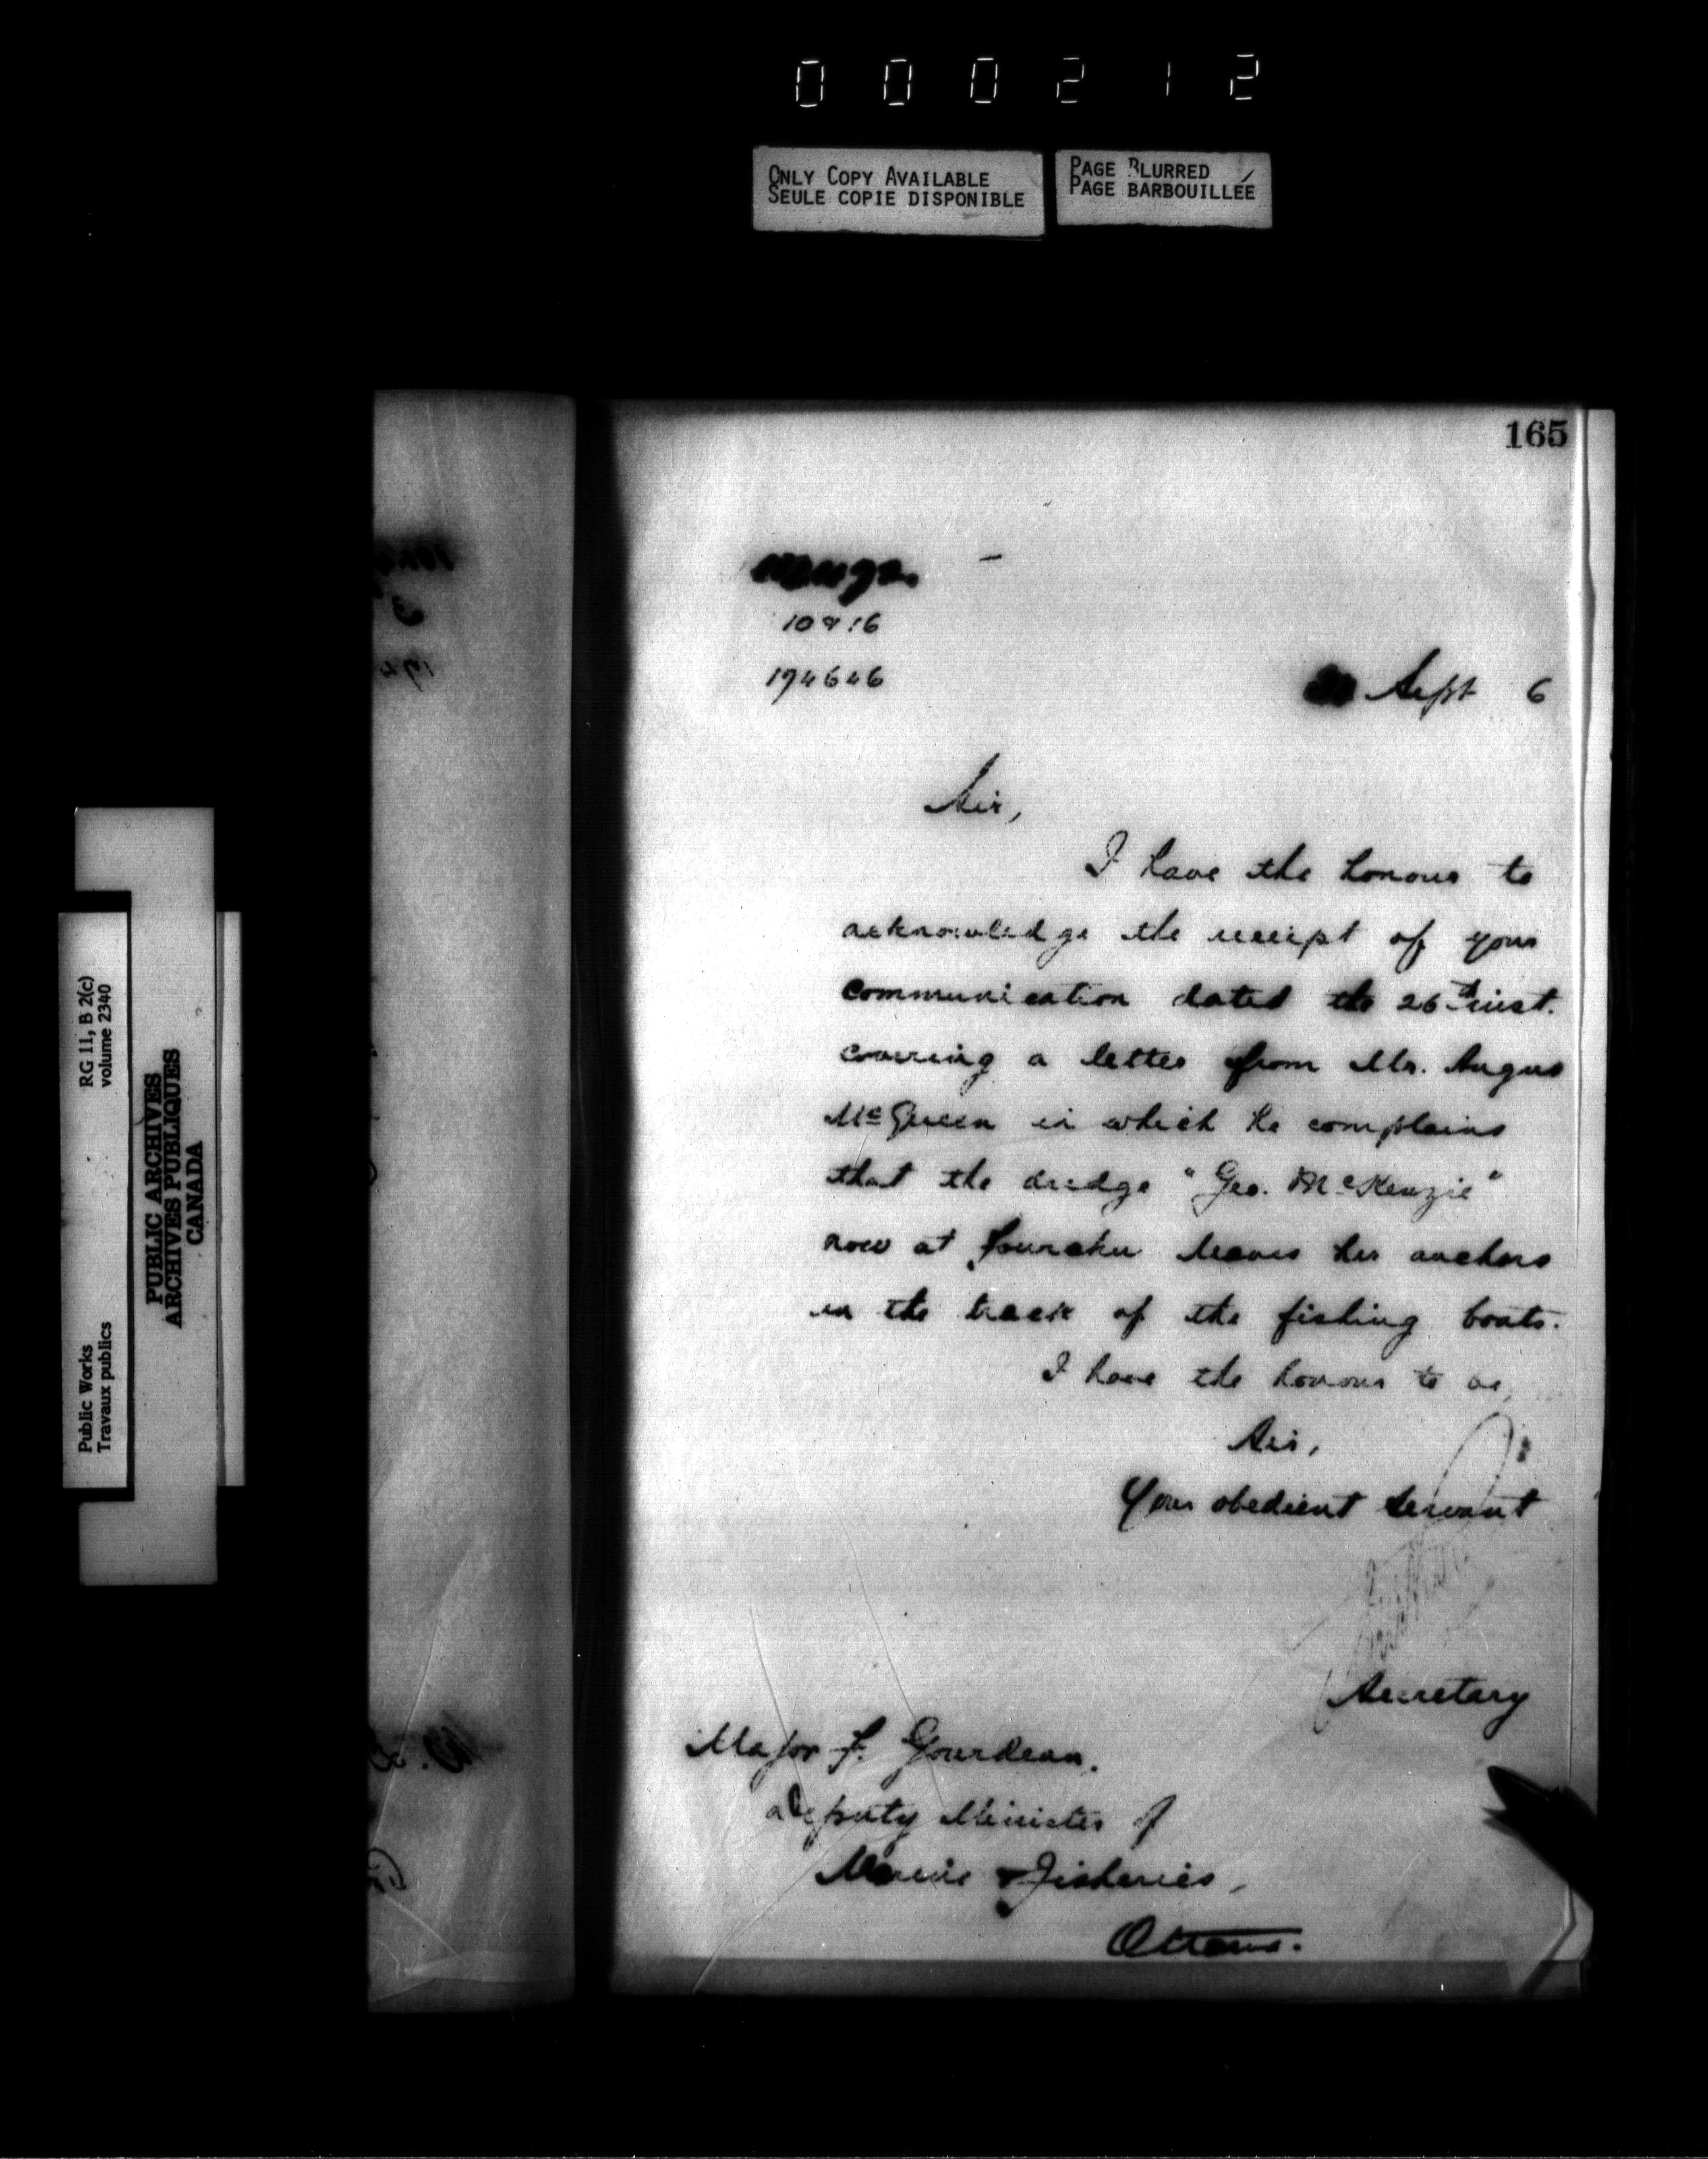 000212
ONLY COPY AVAILABLE
SEULE COPIE DISPONIBLE
PAGE BLURRED
PAGE BARBOUILLÉE
165
194646
Sept 6
Sir,
I have the honour to
acknowledge the receipt of your
communication dated the 26th inst.
covering a letter from Mr. Angus
McQueen in which he complains
that the dredge "Geo. McKenzie"
now at Fourchu leaves her anchors
in the track of the fishing boats.
I have the honour to be,
Sir,
Your obedient servant
Secretary
Major F. Gourdeau,
Deputy Minister of
Marine & Fisheries,
Ottawa.
RG 11, B 2(c)
volume 2340
Public Works
Travaux publics
PUBLIC ARCHIVES
ARCHIVES PUBLIQUES
CANADA